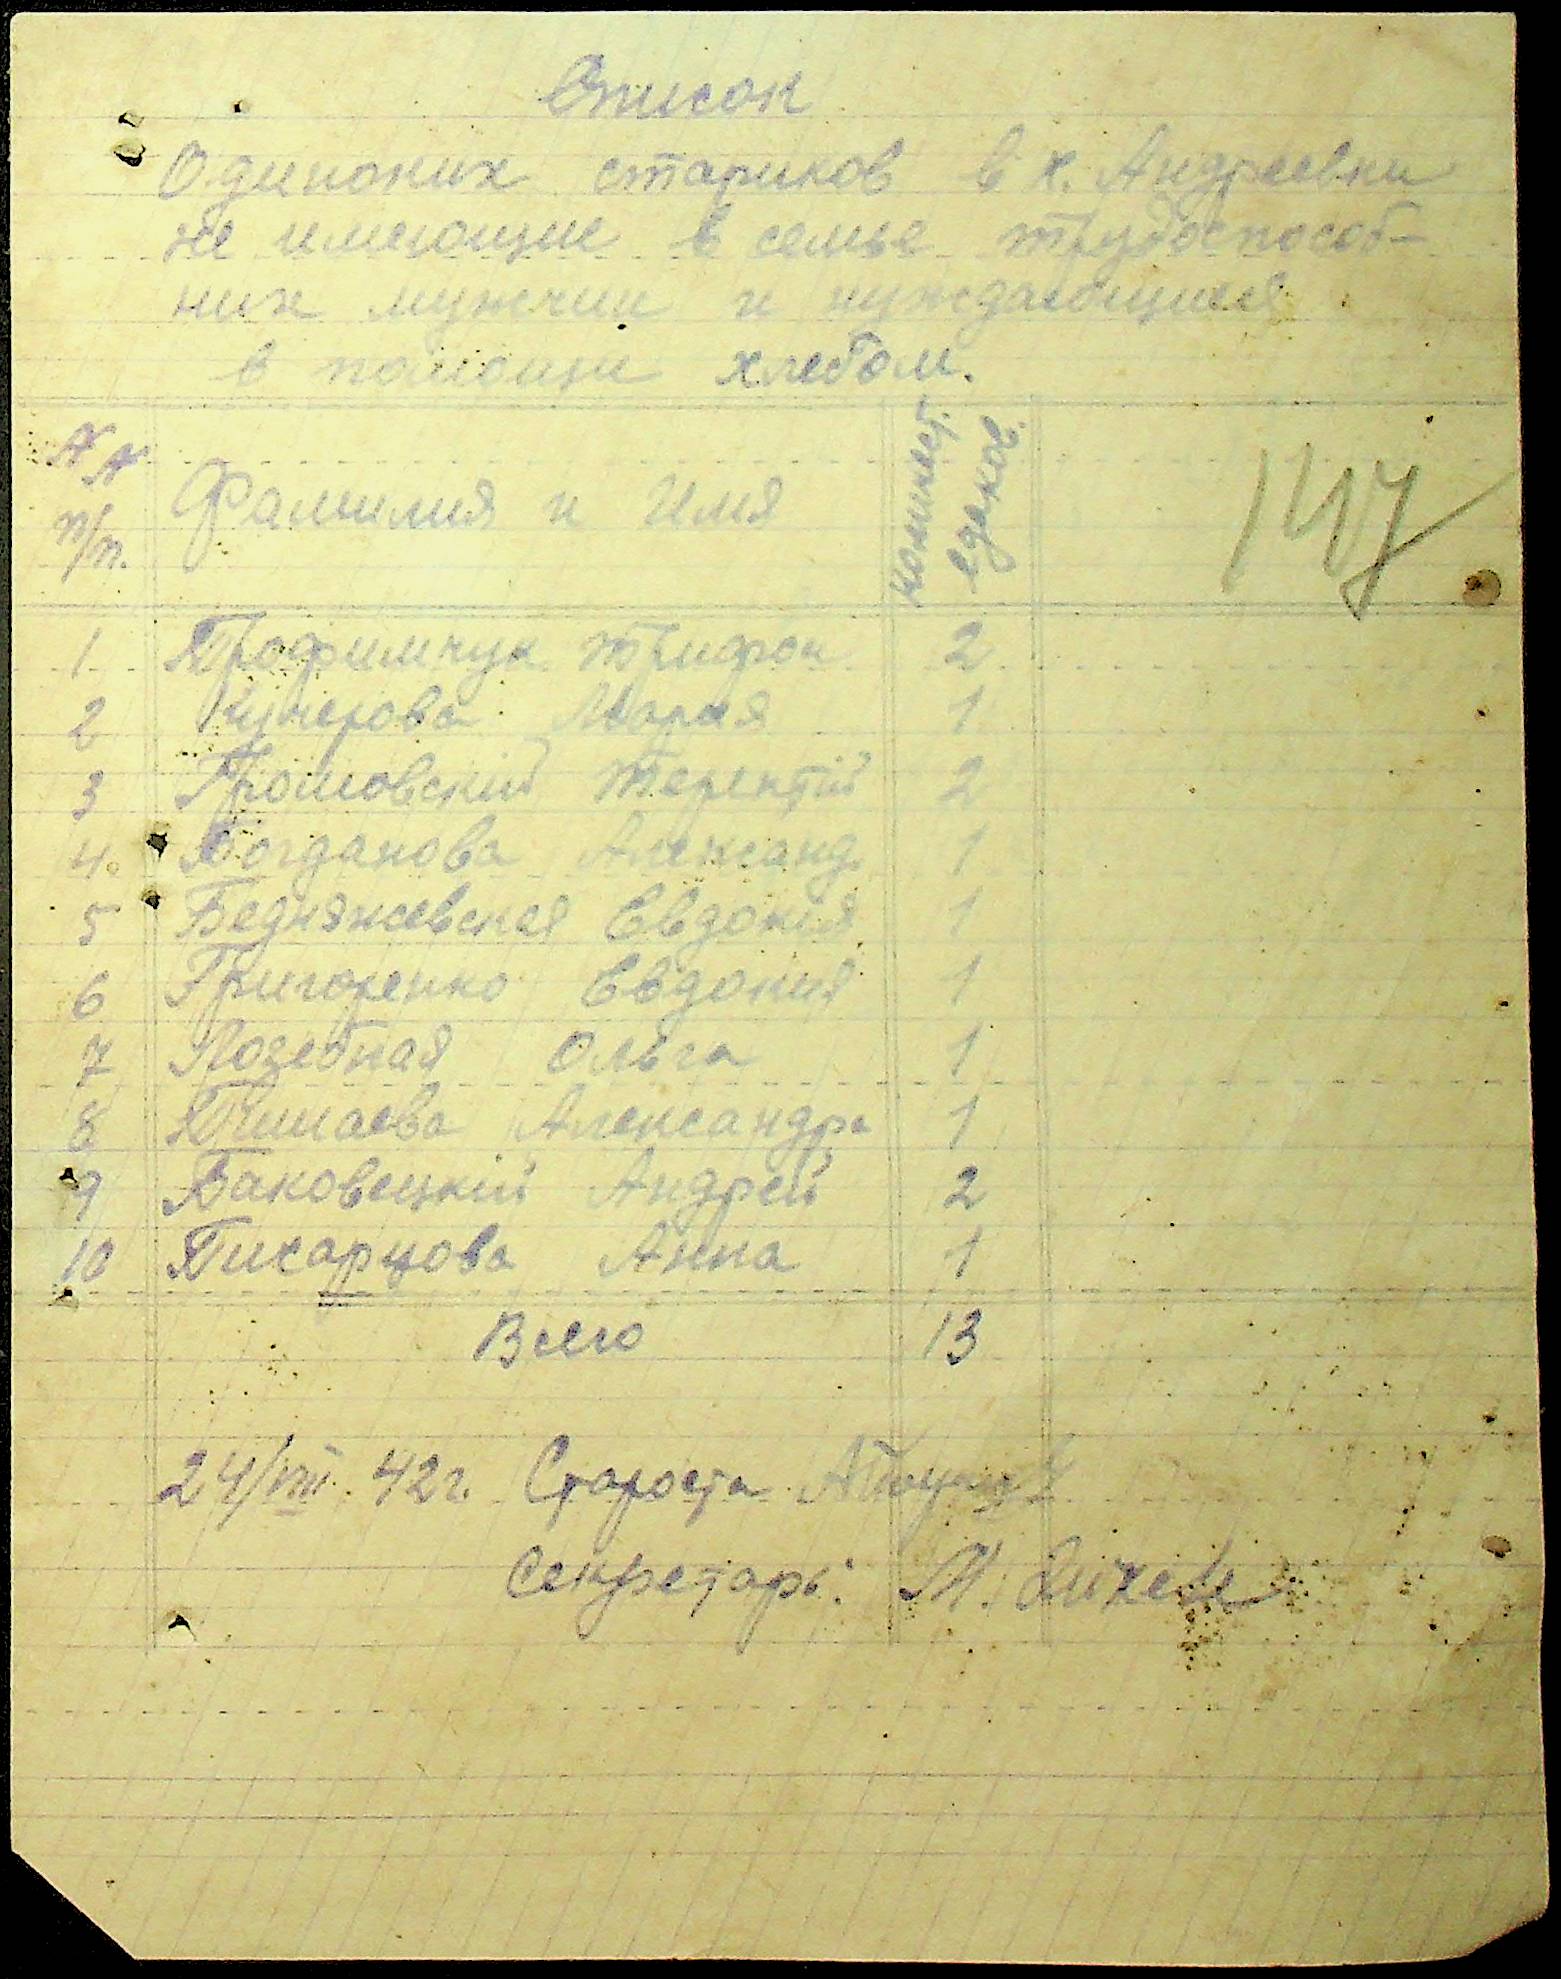 Список
Одиноких стариков в х. Андреевки
не имеющие в семье трудоспособ-
них мужчин и нуждающиеся
в помощи хлебом.
NN п/п. Фамилия и Имя Количест. едоков. 147
1 Трофимчук Трифон 2
2 Кучерова Мария 1
3 Громовский Терентій 2
4. Богданова Александ. 1
5 Бедняжевская Евдокія 1
6 Григоренко Евдокия 1
7 Позебная Ольга 1
8 Тимаева Александра 1
9 Баковецкій Андрей 2
10 Писарцова Анна 1
Всего 13
24/VIII 42г. Староста
Секретарь: М.